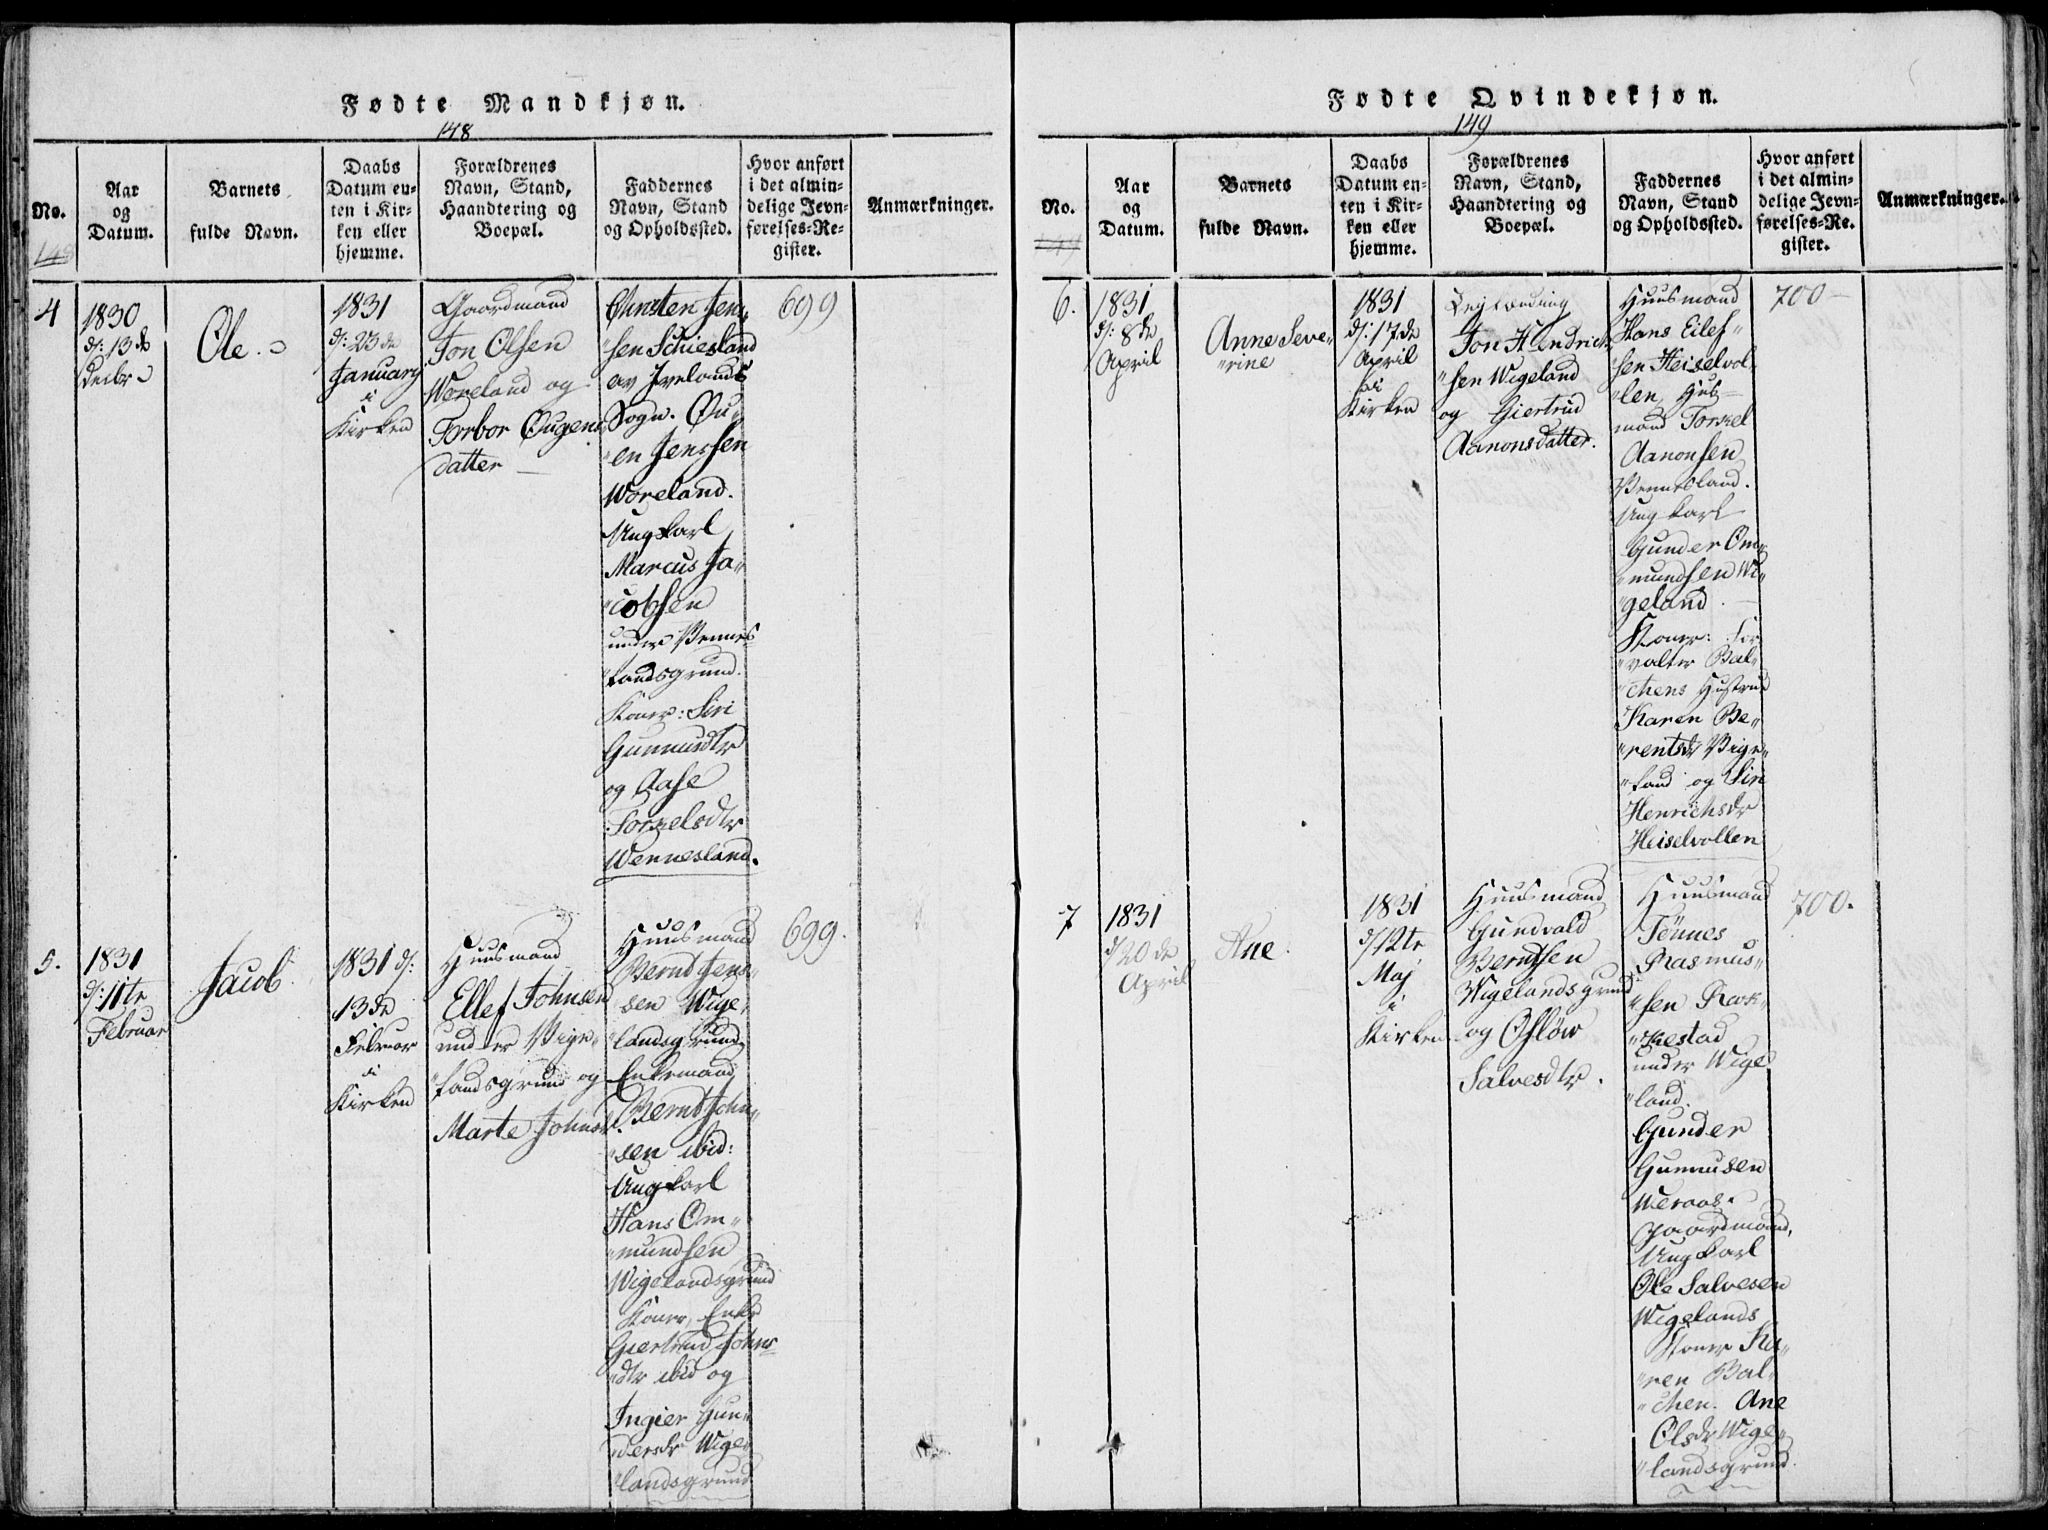 Fødte Mandkjøn.
148
No.
148
Aar
og
Datum.
Barnets
fulde Navn.
Daabs
Datum en-
ten i Kir-
ken eller
hjemme.
Forældrenes
Navn, Stand,
Haandtering og
Boepæl.
Faddernes
Navn, Stand
og Opholdssted.
Hvor anført
i det almin-
delige Jevn-
førelses-Re-
gister.
Anmærkninger.
4
1830
d: 13de
Decbr
Ole.
1831
d: 23de
Januarj
i
Kirken
Gaardmand
Jon Olsen
Woreland og
Torbor Ougens
datter
Christen Jen-
"sen Schiesland
av Ivelands
Sogn. Ou-
"en Jenssen
Woreland.
Ungkarl
Marcus Ja-
"cobsen
under Vennes-
"landsgrund.
Koner: Siri
Gunnusdtr
og Aase
Torkelsdtr
Wennesland.
699
5.
1831
d: 11te
Februar
Jacob.
1831 d:
13de
Februar
i
Kirken
Huusmand
Ellef Johnsen
under Vige-
"landsgrund og
Marte Johnsd.
Huusmand
Bernt Jens-
sen Wige-
"landsgrund
Enkemand
Bernt John-
"sen ibid:
Ungkarl
Hans Om-
"mundsen
Wigelandsgrund
Koner, Enke
Giertrud Johns-
"dtr ibid og
Ingier Gun-
"dersdr Wige-
"landsgrund
699.
Fødte Qvindekjøn.
149
No.
149
Aar
og
Datum.
Barnets
fulde Navn.
Daabs
Datum en-
ten i Kir-
ken eller
hjemme.
Forældrenes
Navn, Stand,
Haandtering og
Boepæl.
Faddernes
Navn, Stand
og Opholdssted.
Hvor anført
i det almin-
delige Jevn-
førelses-Re-
gister.
Anmærkninger.
6.
1831
d: 8de
April
Anne Seve-
"rine
1831
d: 17de
April
i
Kirken
Jon Hendrich-
"sen Wigeland
og Giertrud
Aanonsdatter.
Huusmand
Hans Eilef-
sen Heiselvol-
"len, Hus-
mand Torkel
Aanonsen
Vennesland.
Ungkarl
Gunder Om-
"mundsen Wi-
"geland.
Koner: For-
"valter Bal-
"chens Hustrue
Karen Be-
"rentsdr Vige-
"land og Siri
Henrichsdr
Heiselvollen
700
7
1831
d/20de
April
Ane.
1831
d/12te
Maj
i
Kirken
Huusmand
Gundvald
Berntsen
Wigelandsgrund
og Osløw
Salvesdtr.
Huusmand
Tønnes
Rasmus-
"sen Rok-
"kestad
under Wige-
"land.
Gunder
Gunnusen
Weraas
Gaardmand,
Ungkarl
Ole Salvesen
Wigelands
Koner Ka-
"ren Bal-
"chen. Ane
Olsdr Wige-
"landsgrund.
700.